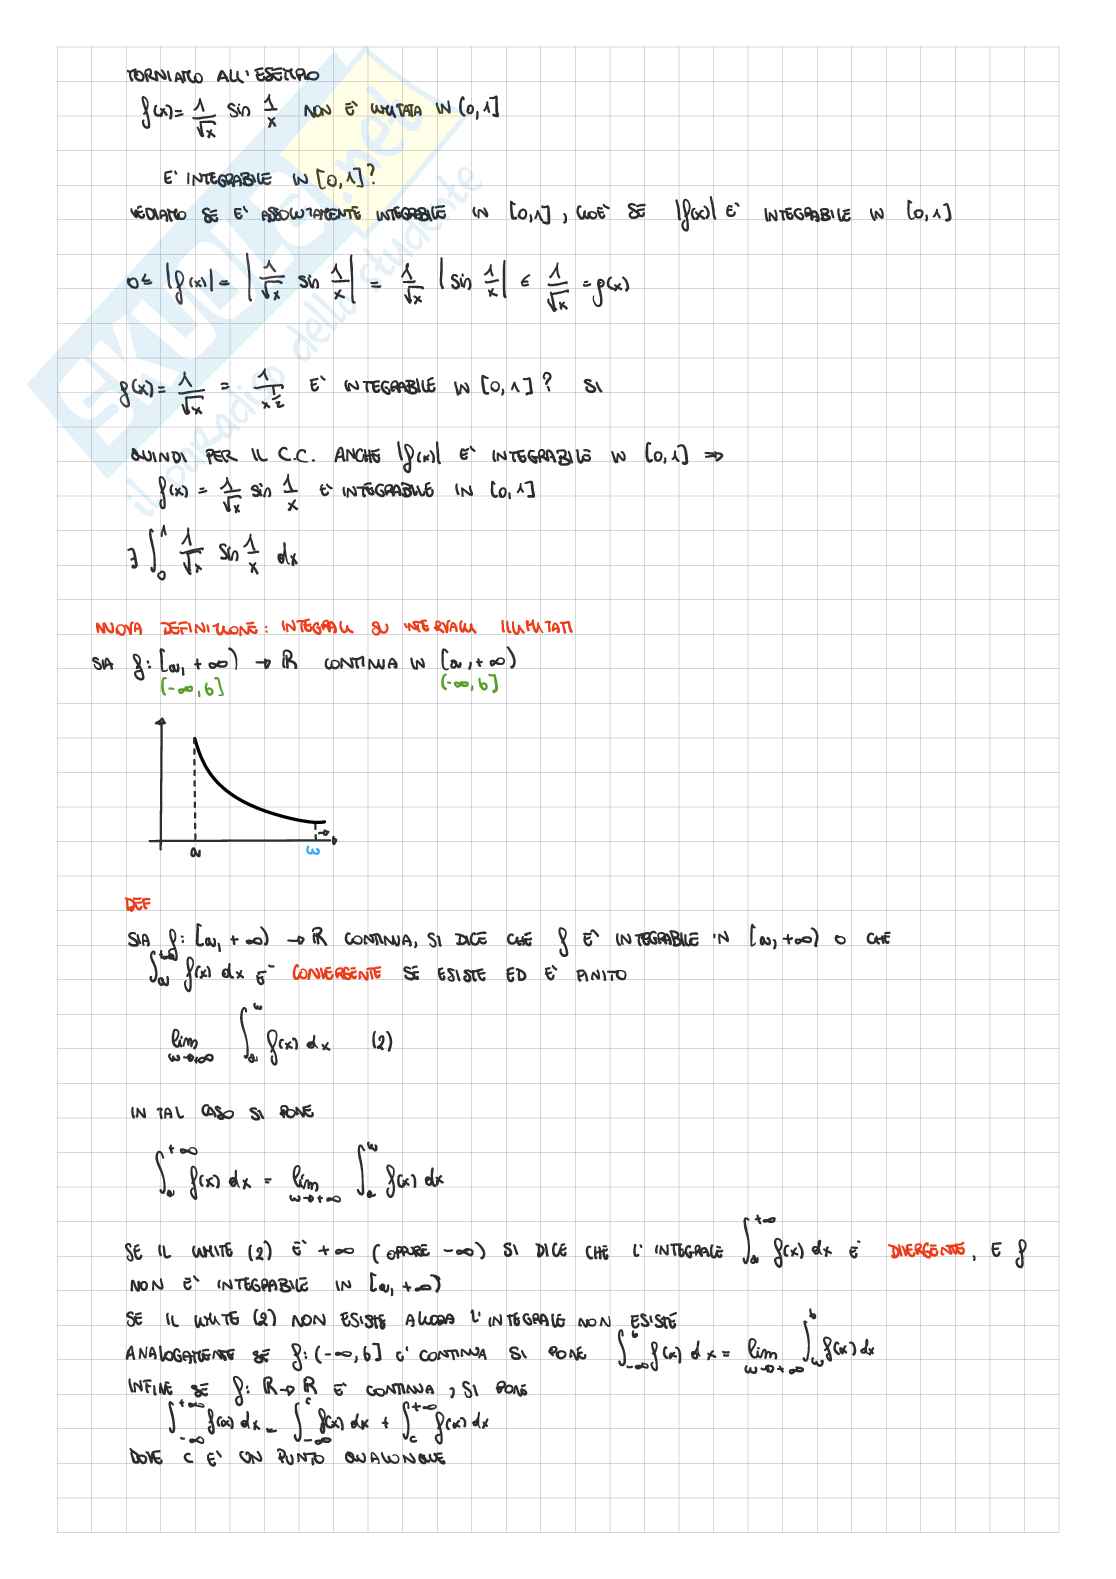 TORNIAMO ALL'ESEMPIO
f(x) = 1/√x sin 1/x NON E' LIMITATA IN (0,1]
E' INTEGRABILE IN [0,1]?
VEDIAMO SE E' ASSOLUTAMENTE INTEGRABILE IN [0,1], CIOE' SE |f(x)| E' INTEGRABILE IN [0,1]
0 ≤ |f(x)| = |1/√x sin 1/x| = 1/√x |sin 1/x| ≤ 1/√x = g(x)
g(x) = 1/√x = 1/x^(1/2) E' INTEGRABILE IN [0,1]? SI
QUINDI PER IL C.C. ANCHE |f(x)| E' INTEGRABILE IN [0,1] ⇒
f(x) = 1/√x sin 1/x E' INTEGRABILE IN [0,1]
∃ ∫₀¹ 1/√x sin 1/x dx
NUOVA DEFINIZIONE: INTEGRALI SU INTERVALLI ILLIMITATI
SIA f: [a, +∞) → ℝ CONTINUA IN [a, +∞)
(-∞, b] (-∞, b]
a ω
DEF
SIA f: [a, +∞) → ℝ CONTINUA, SI DICE CHE f E' INTEGRABILE IN [a, +∞) O CHE
∫_a^{+∞} f(x) dx E' CONVERGENTE SE ESISTE ED E' FINITO
lim_{ω→+∞} ∫_a^ω f(x) dx (2)
IN TAL CASO SI PONE
∫_a^{+∞} f(x) dx = lim_{ω→+∞} ∫_a^ω f(x) dx
SE IL LIMITE (2) E' +∞ (OPPURE -∞) SI DICE CHE L'INTEGRALE ∫_a^{+∞} f(x) dx E' DIVERGENTE, E f
NON E' INTEGRABILE IN [a, +∞)
SE IL LIMITE (2) NON ESISTE ALLORA L'INTEGRALE NON ESISTE
ANALOGAMENTE SE f: (-∞, b] E' CONTINUA SI PONE ∫_{-∞}^b f(x) dx = lim_{ω→+∞} ∫_ω^b f(x) dx
INFINE SE f: ℝ → ℝ E' CONTINUA, SI PONE
∫_{-∞}^{+∞} f(x) dx = ∫_{-∞}^c f(x) dx + ∫_c^{+∞} f(x) dx
DOVE C E' UN PUNTO QUALUNQUE
SKUOLA.net
il paradiso dello studente